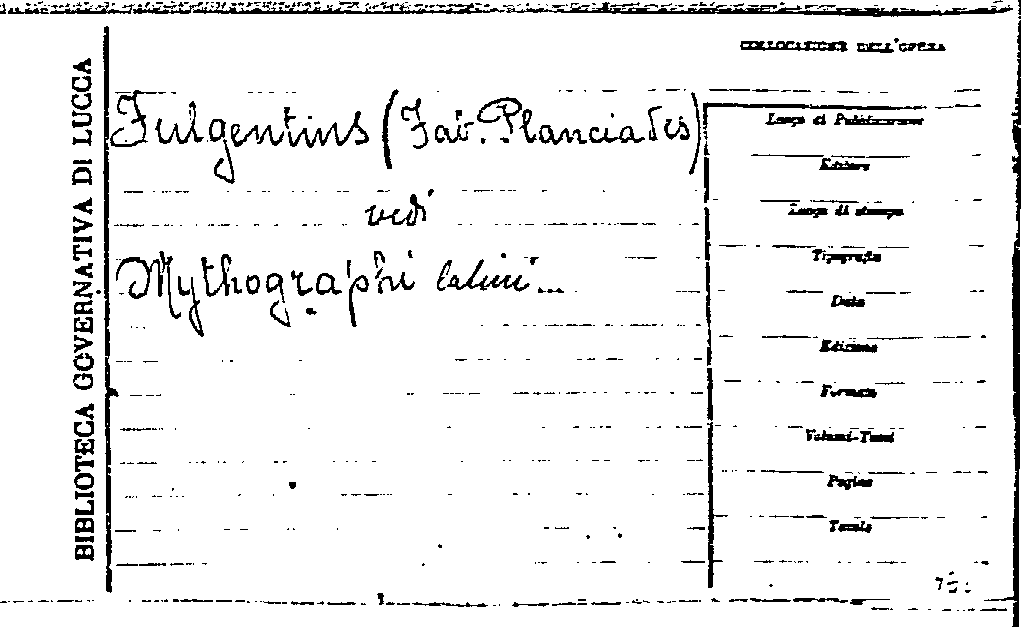 BIBLIOTECA GOVERNATIVA DI LUCCA
COLLOCAZIONE DELL'OPERA
Fulgentius (Fab. Planciades)
vedi
Mythographi latini...
Luogo di Pubblicazione
Editore
Luogo di stampa
Tipografia
Data
Edizione
Formato
Volumi-Tomi
Pagine
Tavole